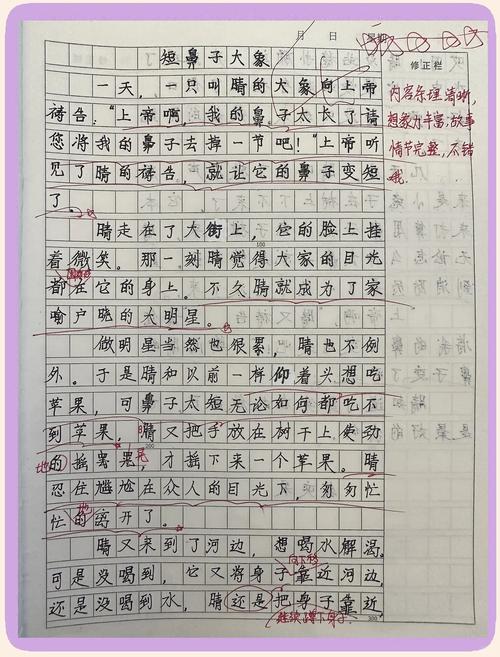 月 日 星期
修正栏
短鼻子大象
一天，一只叫晴的大象向上帝
祷告：“上帝啊，我的鼻子太长了请
您将我的鼻子去掉一节吧！”上帝听
见了晴的祷告，就让它的鼻子变短
了。
晴走在了大街上，它的脸上挂
着微笑。那一刻晴觉得大家的目光
都在它的身上。不久晴就成为了家
喻户晓的大明星。
做明星当然也很累，晴也不例
外。于是晴和以前一样仰着头想吃
苹果，可鼻子太短无论如何都吃不
到苹果。晴又把手放在树干上使劲
的摇晃，才摇下来一个苹果。晴
忍住尴尬在众人的目光下，匆匆忙
忙的离开了。
晴又来到了河边，想喝水解渴。
可是没喝到，它又将身子靠近河边，
还是没喝到水，晴还是把身子靠近
100
200
300
内容条理清晰，
想象力丰富，故事
情节完整，不错
哦。
地
晃
地
向下移
继续蹲下身子